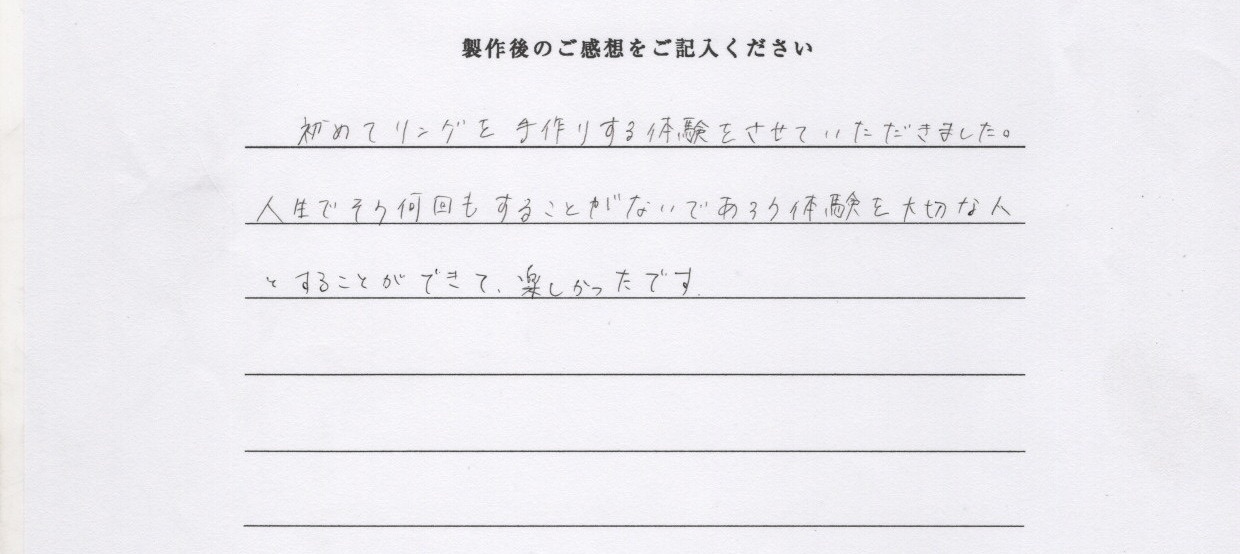 製作後のご感想をご記入ください
初めてリングを手作りする体験をさせていただきました。
人生でそう何回もすることがないであろう体験を大切な人
とすることができて、楽しかったです.